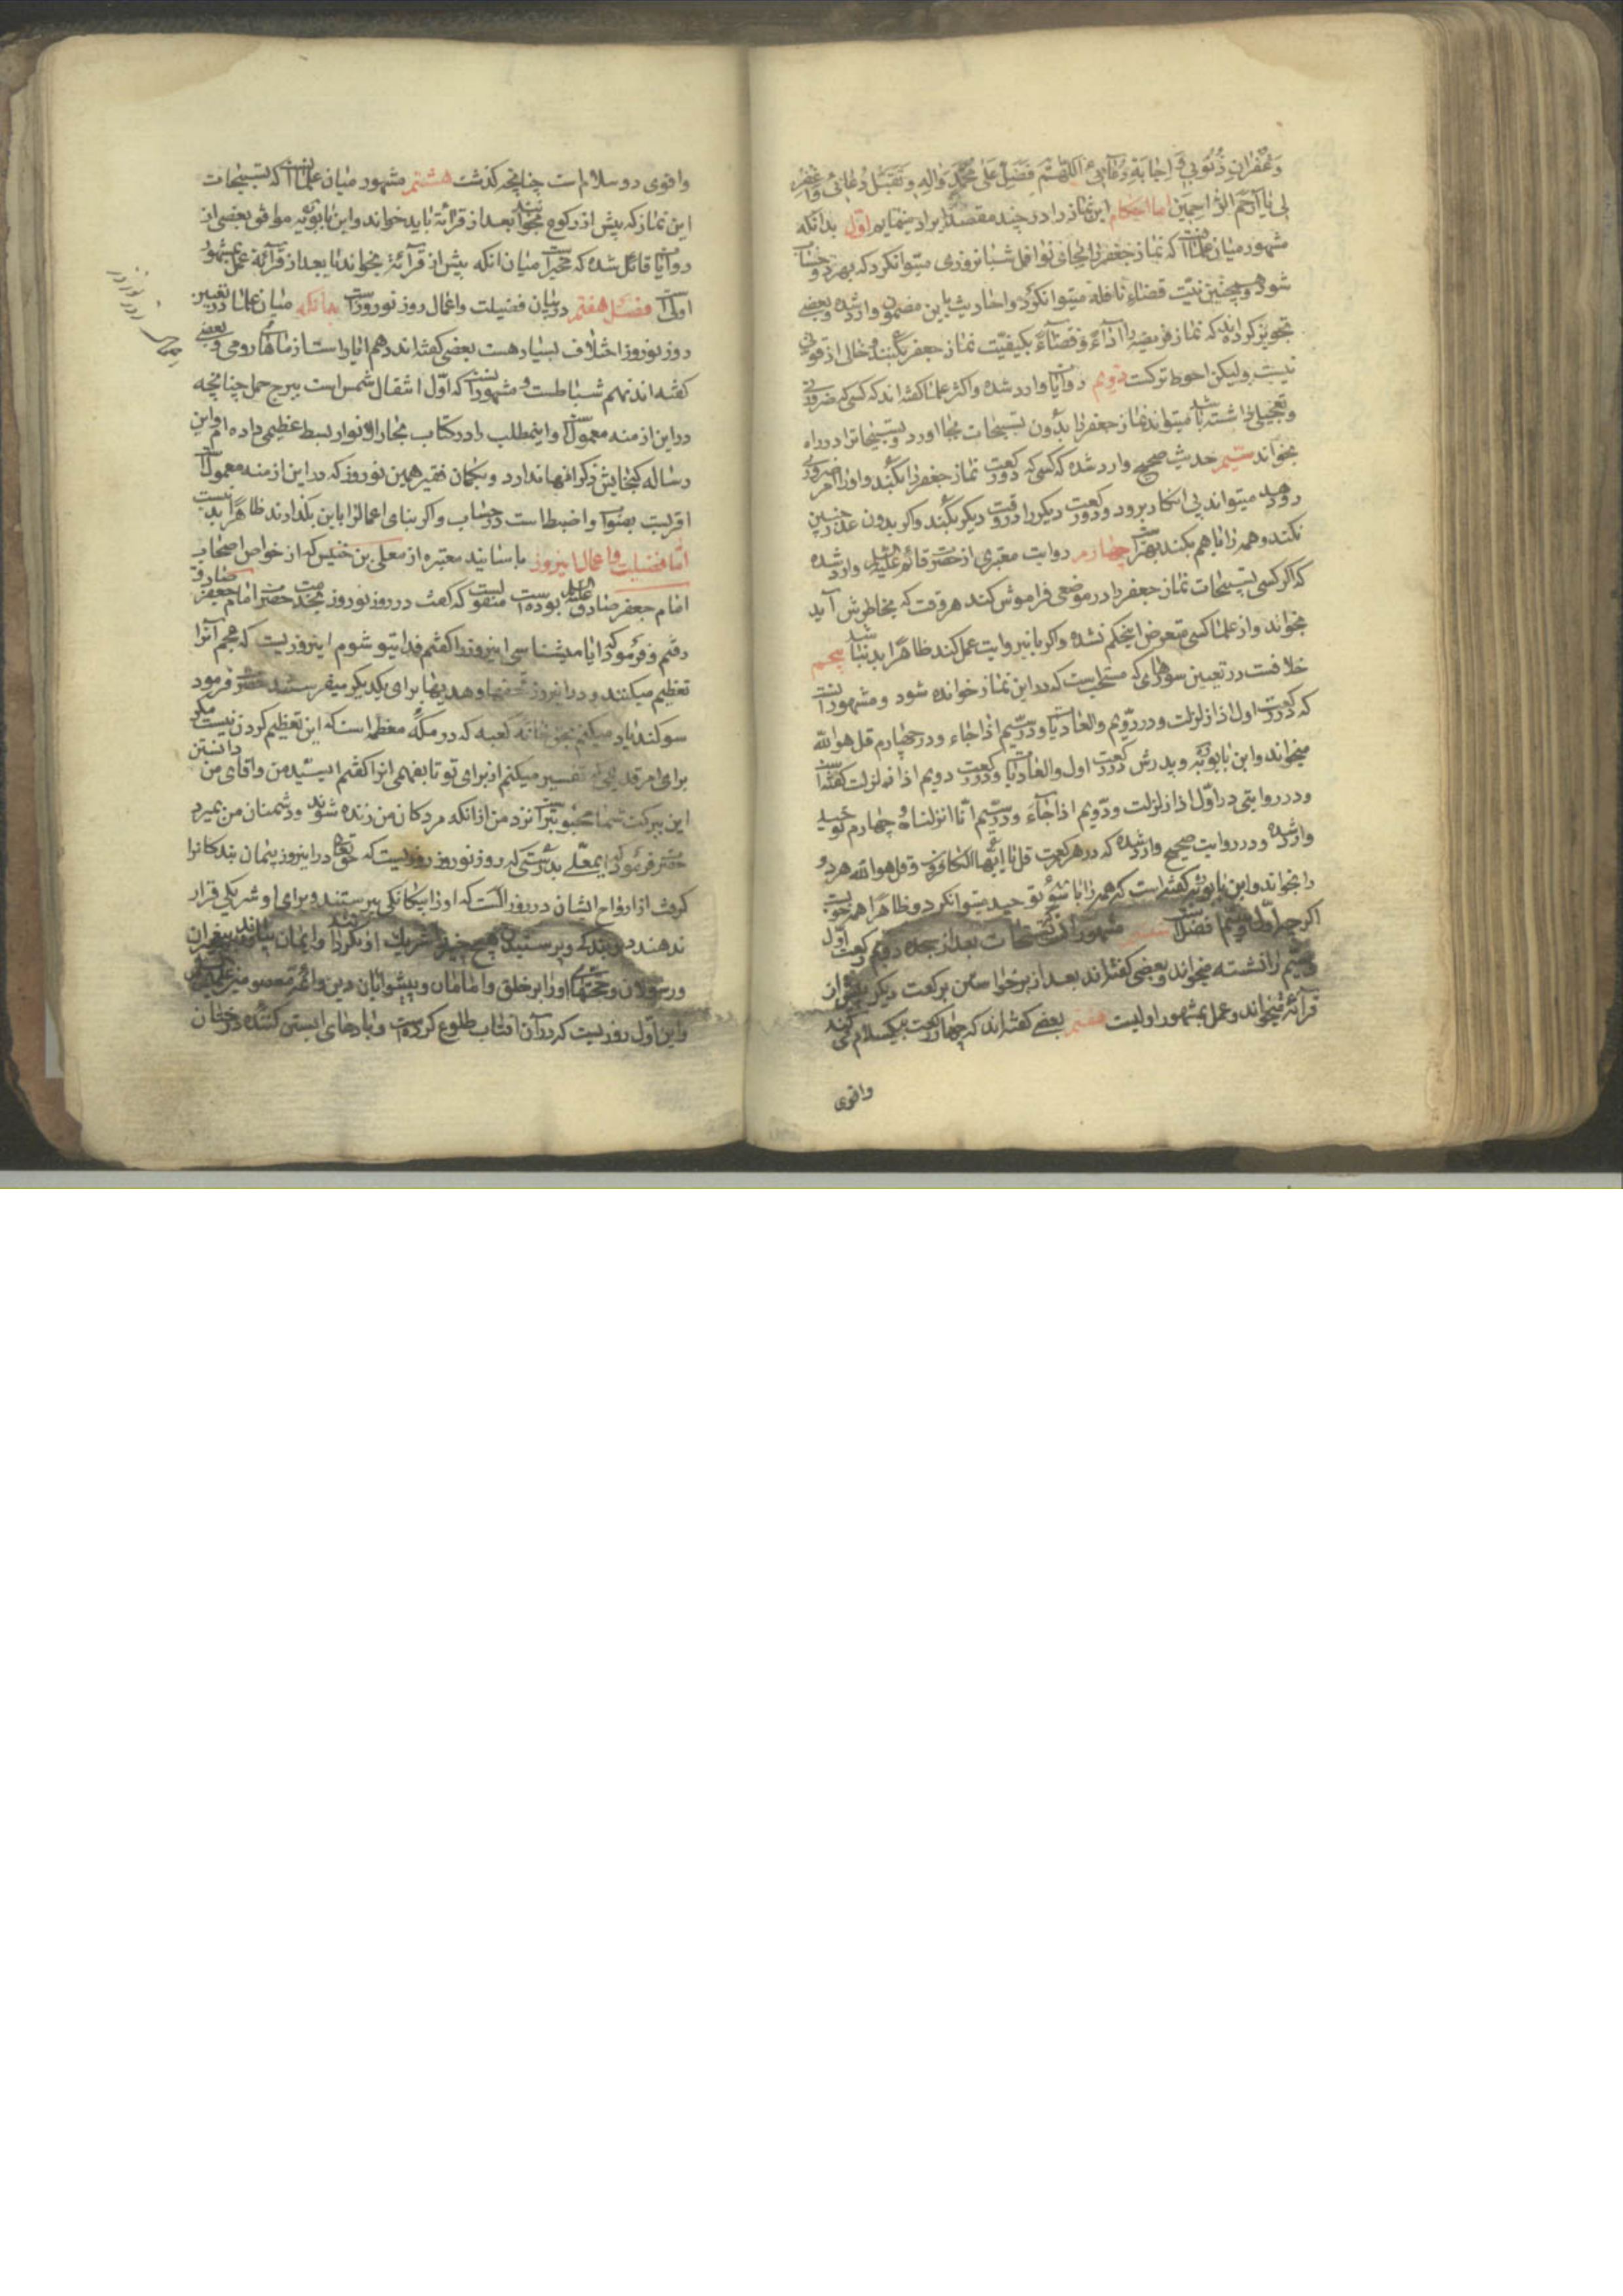 وَغُفْرانِ ذُنُوبي وَ اِجابَةِ دُعائي اللّهُمَّ فَصَلِّ عَلى مُحَمَّدٍ وَالِهِ وَتَقَبَّل دُعائي وَاغْفِر
لي يا اَرْحَمَ الرّاحِمينَ اما احكام اين نماز را در چند مقصد ايراد مينمايم اوّل بدانكه
مشهور ميان علما آنست كه نماز جعفر را بجاى نوافل شبانروزى ميتوان كرد كه بهر دو حساب
شود و همچنين نيت قضاء نافله ميتوان كرد و احاديث باين مضمون وارد شده و بعضى
تجويز كرده‌اند كه نماز فريضه را اداءً و قضاءً بكيفيّت نماز جعفر بكنند و خالى از قوتى
نيست وليكن احوط تركست دويم روايات وارد شده و اكثر علما كفته‌اند كه كسى كه ضرورتى
و تعجيلى داشته باشد ميتواند نماز جعفر را بدون تسبيحات بجا اورد و تسبيحاترا در راه
بخواند سيّم حديث صحيح وارد شده كه كسى كه دو ركعت نماز جعفر را بكند و او را امر ضرورى
رو دهد ميتواند پى انكار برود و دو ركعت ديكر را در وقت ديكر بكند و اكر بدون عذر چنين
نكند و همه را با هم بكند بهتر است چهارم روايت معتبرى از حضرت قائم عليه السلم وارد شده
كه اكر كسى تسبيحات نماز جعفر را در موضعى فراموش كند هر وقت كه بخاطرش آيد
بخواند و از علما كسى متعرض اينحكم نشده و اكر باين روايت عمل كند ظاهرا بد نباشد پنجم
خلافست در تعيين سورهاى كه مستحب است كه در اين نماز خوانده شود و مشهور آنست
كه در ركعت اول اذا زلزلت و در دويم والعاديات و در سيّم اذا جاء و در چهارم قل هو الله
ميخواند و ابن بابويه و پدرش در ركعت اول والعاديات و در ركعت دويم اذا زلزلت كفته‌اند
و در روايتى در اوّل اذا زلزلت و دويم اذا جاءَ و در سيّم انّا انزلناه و چهارم توحيد
وارد شده و در روايت صحيح وارد شده كه در هر ركعت قل يا ايها الكافرون و قل هو الله هر دو
را بخواند و ابن بابويه كفته است كه همه را با سوره توحيد ميتوان كرد و ظاهرا همه خوبست
اكر چه اوّل و سيم افضل است ششم مشهور آنست كه تسبيحات بعد از سجده دويم ركعت اوّل
و سيّم را نشسته ميخواند و بعضى كفته‌اند بعد از برخواستن بركعت ديكر پيش از
قرائة ميخواند و عمل بمشهور اوليست هفتم بعضى كفته‌اند كه چهار ركعت بيكسلام مى كند
واقوى
واقوى دو سلام است چنانچه كذشت هشتم مشهور ميان علما آنست كه تسبيحات
اين نماز كه پيش از ركوع بخوانند بعد از قرائة بايد خواند و ابن بابويه موافق بعضى از
روايات قائل شده كه مخير است ميان انكه پيش از قرائة بخواند يا بعد از قرائة عمل بمشهور
اولى است فصل هفتم در بيان فضيلت و اعمال روز نوروز است بدانكه ميان علما در تعيين
روز نوروز اختلاف بسيار هست بعضى كفته‌اند دهم ايار است از ماههاى رومى و بعضى
كفته‌اند نهم شباطست و مشهور آنست كه اوّل انتقال شمس است ببرج حمل چنانچه
در اين ازمنه معمولست و اينمطلب را در كتاب بحار الانوار بسط عظيمى داده‌ام و اين
رساله كنجايش ذكر انها ندارد و بكمان فقير همين نوروز كه در اين ازمنه معمولست
اقربست بصواب و اضبط است در حساب و اكر بناى اعمالرا باين بكذارند ظاهراً بد نيست
امّا فضيلت و اعمال اينروز باسانيد معتبره از معلى بن خنيس كه از خواص اصحاب
امام جعفر صادق عليه السلم بوده است منقولست كه كفت در روز نوروز بخدمت حضرت امام جعفر صادق
رفتم فرمود كه ايا ميشناسى اينروز را كفتم فداى تو شوم اينروزيست كه عجم آنرا
تعظيم ميكنند و در اينروز تحفها و هديها براى يكديكر ميفرستند حضرت فرمود
سوكند ياد ميكنم بحق خانه كعبه كه در مكّه معظمه است كه اين تعظيم كردن نيست مكر
براى امر قديمى كه تفسير ميكنم از براى تو تا بفهمى انرا كفتم اى سيّد من و اقاى من دانستن
اين ببركت شما محبوبتر است نزد من از انكه مردكان من زنده شوند و دشمنان من بميرند
حضرت فرمود كه ايمعلّى بدرستى كه روز نوروز روزيست كه حقتعالى در اينروز پيمان بندكانرا
كرفت از ارواح ايشان در روز الست كه او را بيكانكى بپرستند و براى او شريكى قرار
ندهند در بندكى و پرستيدن هيچ چيز را شريك او نكردانند و ايمان بياورند به پيغمبران
و رسولان و حجّتهاى او را بر خلق و امامان و پيشوايان دين و ائمه معصومين عليهم السلم
و اين اوّل روزيست كه در آن افتاب طلوع كرده است و بادهاى ابستن كننده درختان
روز نوروز